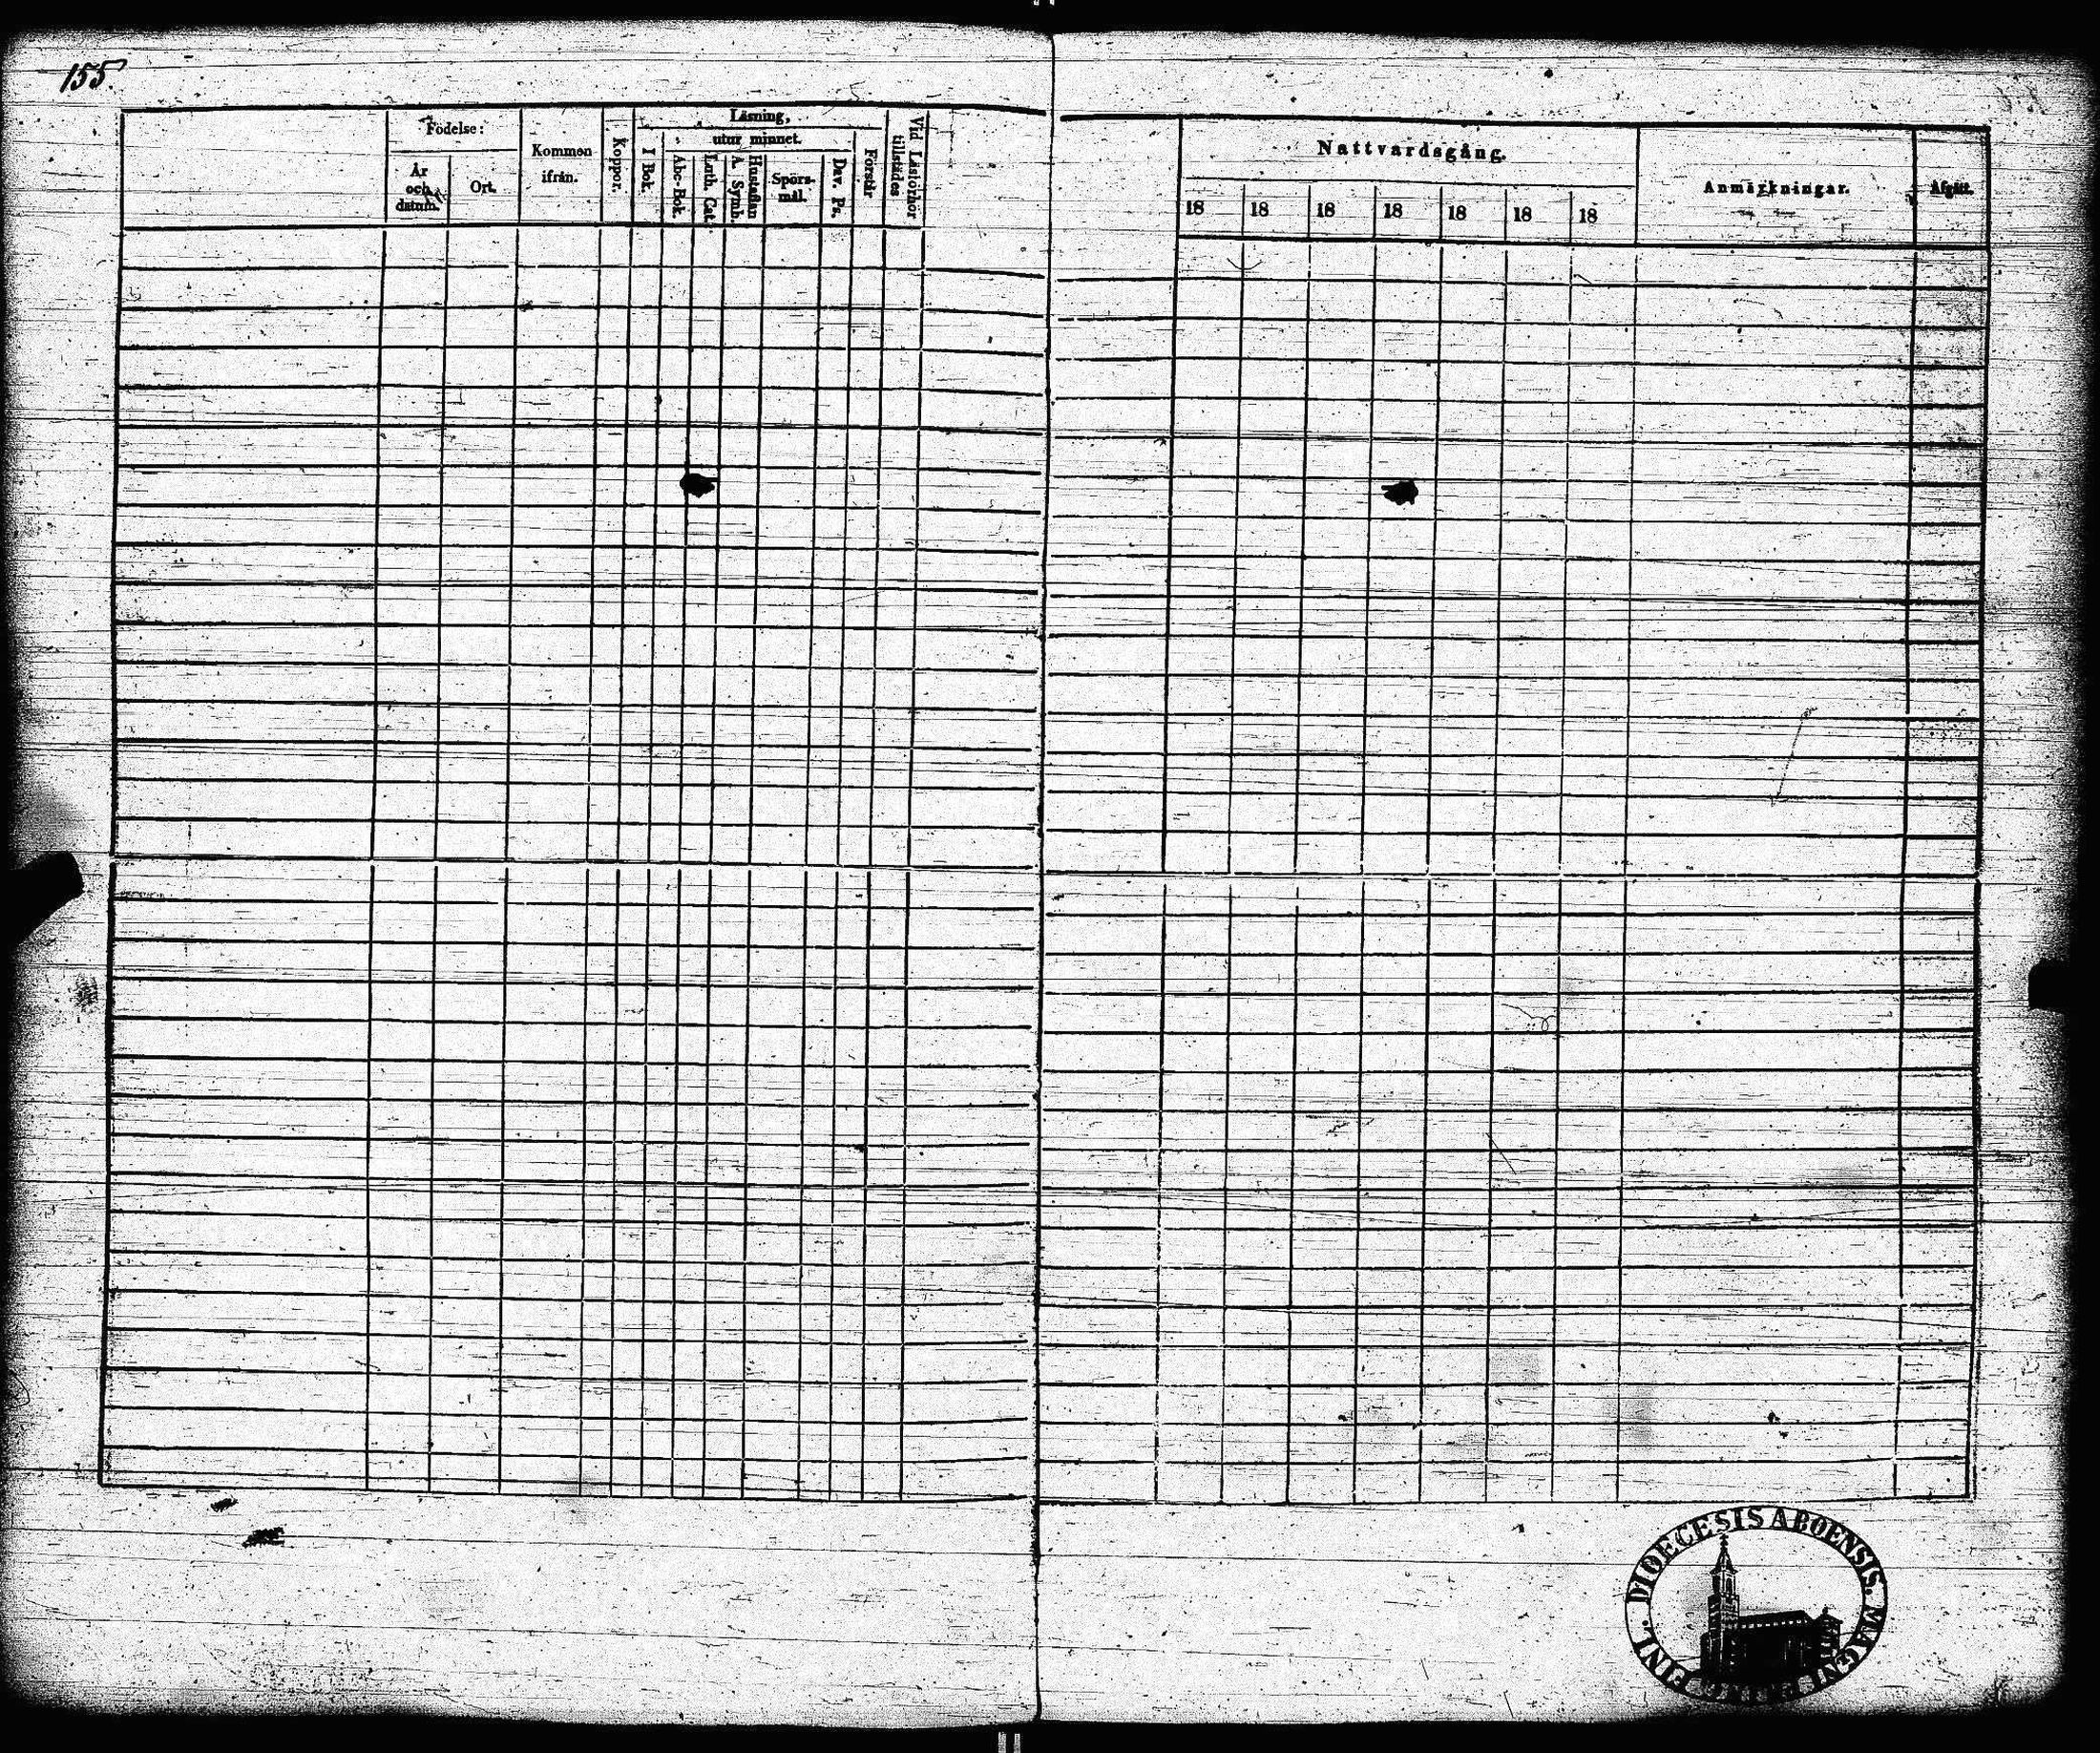 155.
Födelse:
År
och
datum.
Ort.
Kommen
ifrån.
Koppor.
Läsning,
I Bok.
utur minnet.
Abc-Bok.
Luth. Cat.
A. Symb.
Hustaflan
Spörs-
mål.
Dav. Ps.
Förstår
Vid Läsförhör
tillstädes
Nattvardsgång.
18 18 18 18 18 18 18
Anmärkningar.
Afgått.
DIOECESIS ABOENSIS. MAGNI FINL.